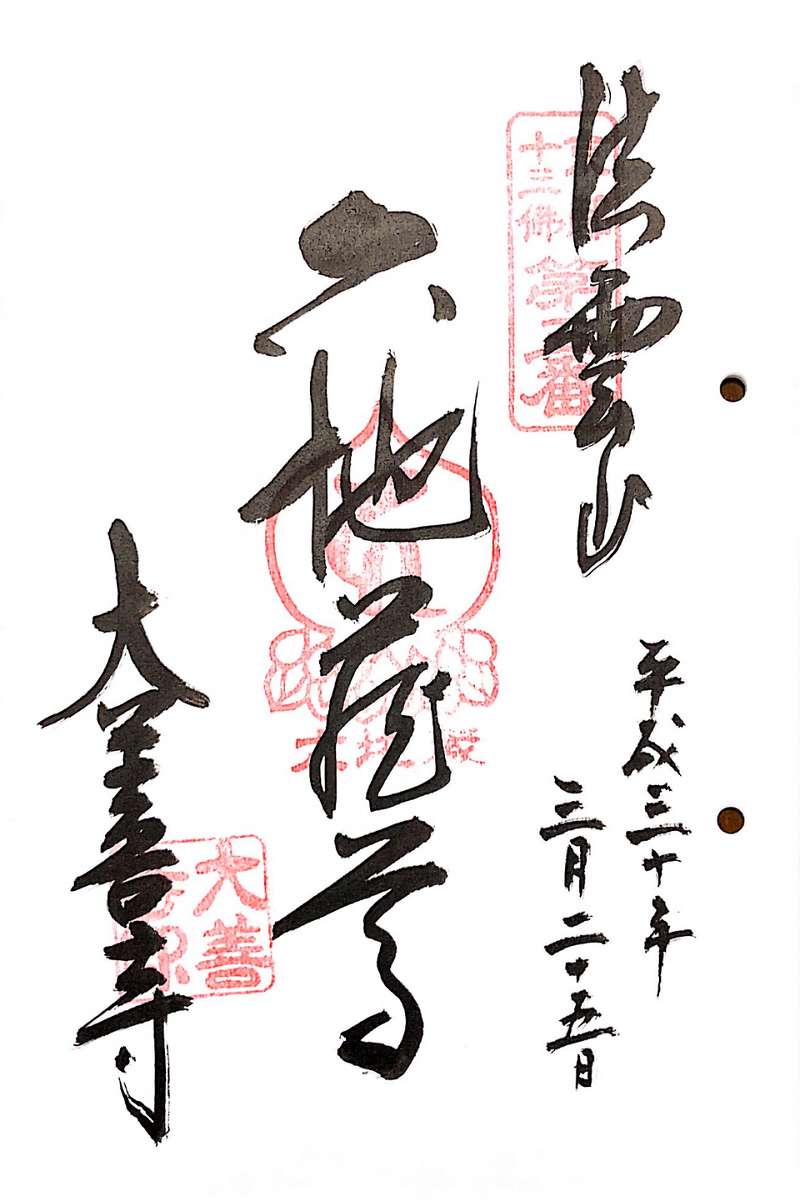 法雲山
平成三十年
三月二十五日
六地蔵尊
大善寺
十三佛
第
番
大善